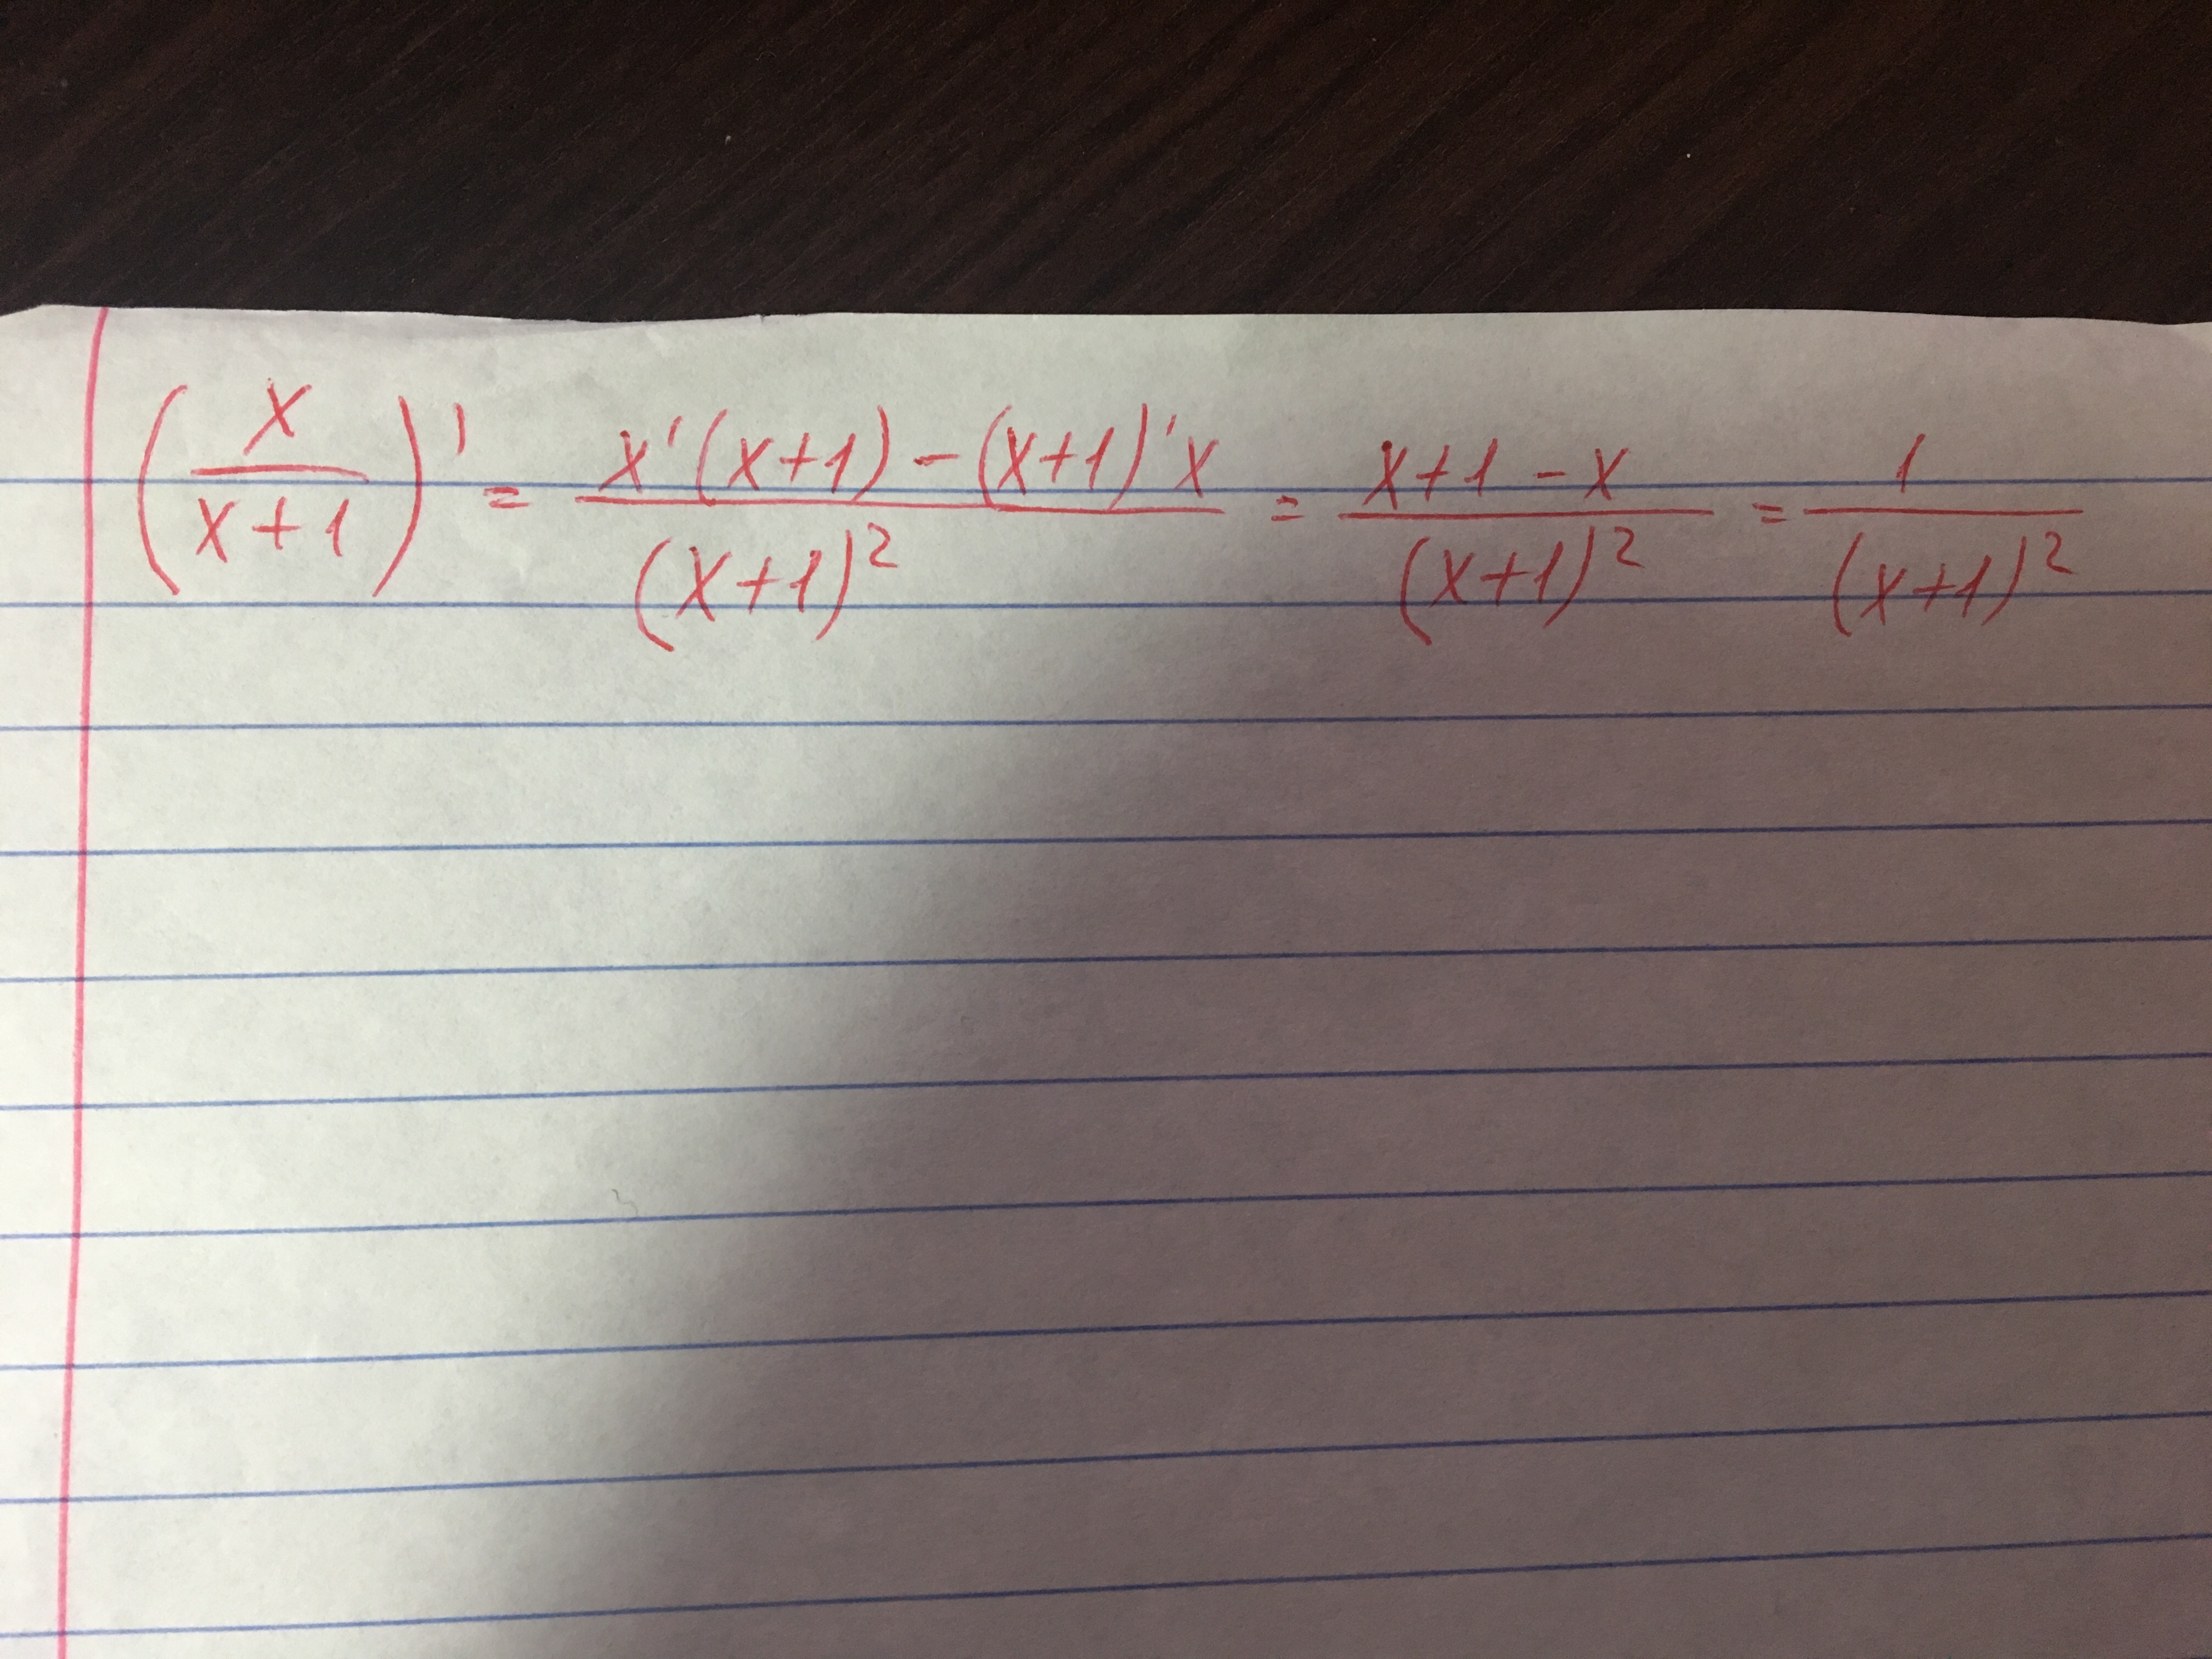 (x/(x+1))' = (x'(x+1) - (x+1)'x)/(x+1)² = (x+1-x)/(x+1)² = 1/(x+1)²